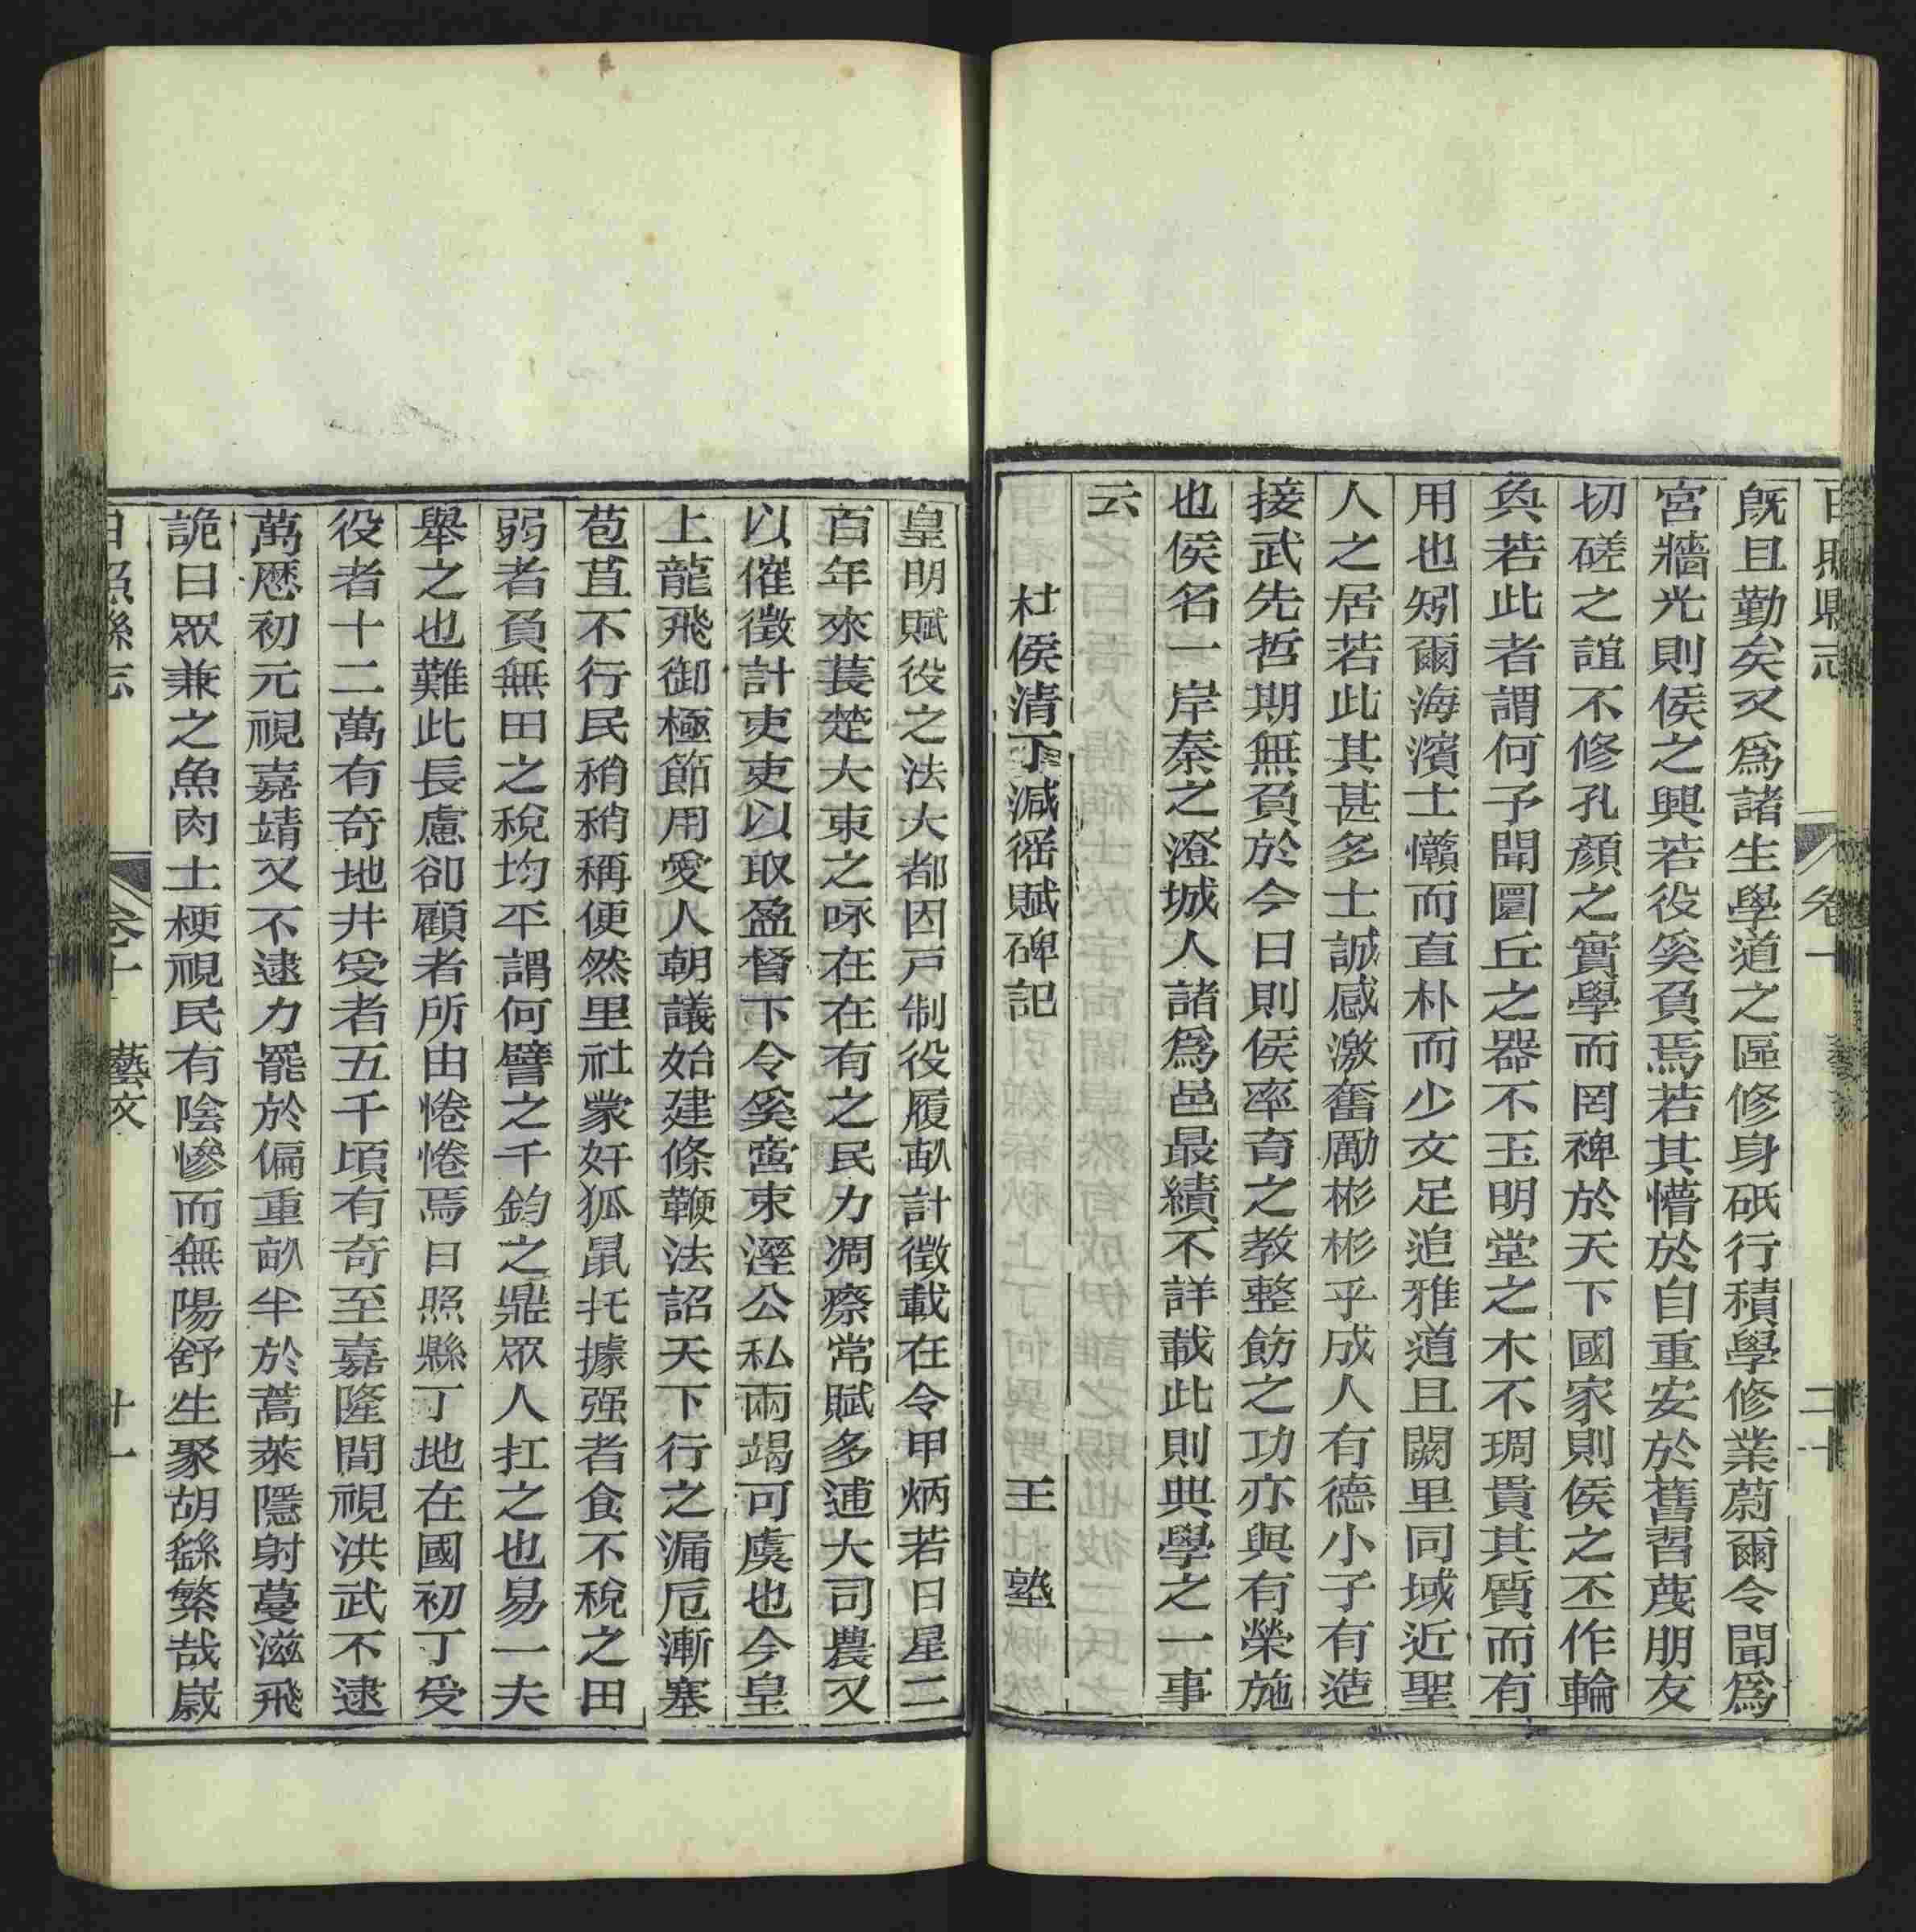 日照縣志 卷十 二十
既且勤矣又爲諸生學道之區修身砥行積學修業蔚爾令聞爲
宮牆光則侯之興若役奚負焉若其懵於自重安於舊習蔑朋友
切磋之誼不修孔顏之實學而罔裨於天下國家則侯之丕作輪
奐若此者謂何予聞圜丘之器不玉明堂之木不琱貴其質而有
用也矧爾海濱士戇而直朴而少文足追雅道且闕里同域近聖
人之居若此其甚多士誠感激奮勵彬彬乎成人有德小子有造
接武先哲期無負於今日則侯率育之教整飭之功亦與有榮施
也侯名一岸秦之澄城人諸爲邑最績不詳載此則典學之一事
云
杜侯清丁減徭賦碑記 王塾
皇明賦役之法大都因戶制役履畝計徵載在令甲炳若日星二
百年來萋楚大東之咏在在有之民力凋瘵常賦多逋大司農又
以催徵計吏吏以取盈督下令奚啻束溼公私兩竭可虞也今皇
上龍飛御極節用愛人朝議始建條鞭法詔天下行之漏卮漸塞
苞苴不行民稍稍稱便然里社蒙奸狐鼠托據强者食不稅之田
弱者負無田之稅均平謂何譬之千鈞之鼎眾人扛之也易一夫
舉之也難此長慮卻顧者所由惓惓焉日照縣丁地在國初丁受
役者十二萬有奇地井受者五千頃有奇至嘉隆間視洪武不逮
萬歷初元視嘉靖又不逮力罷於偏重畝半於蒿萊隱射蔓滋飛
詭日眾兼之魚肉士梗視民有陰慘而無陽舒生聚胡繇繁哉嶷
日照縣志 卷十 藝文 廿一